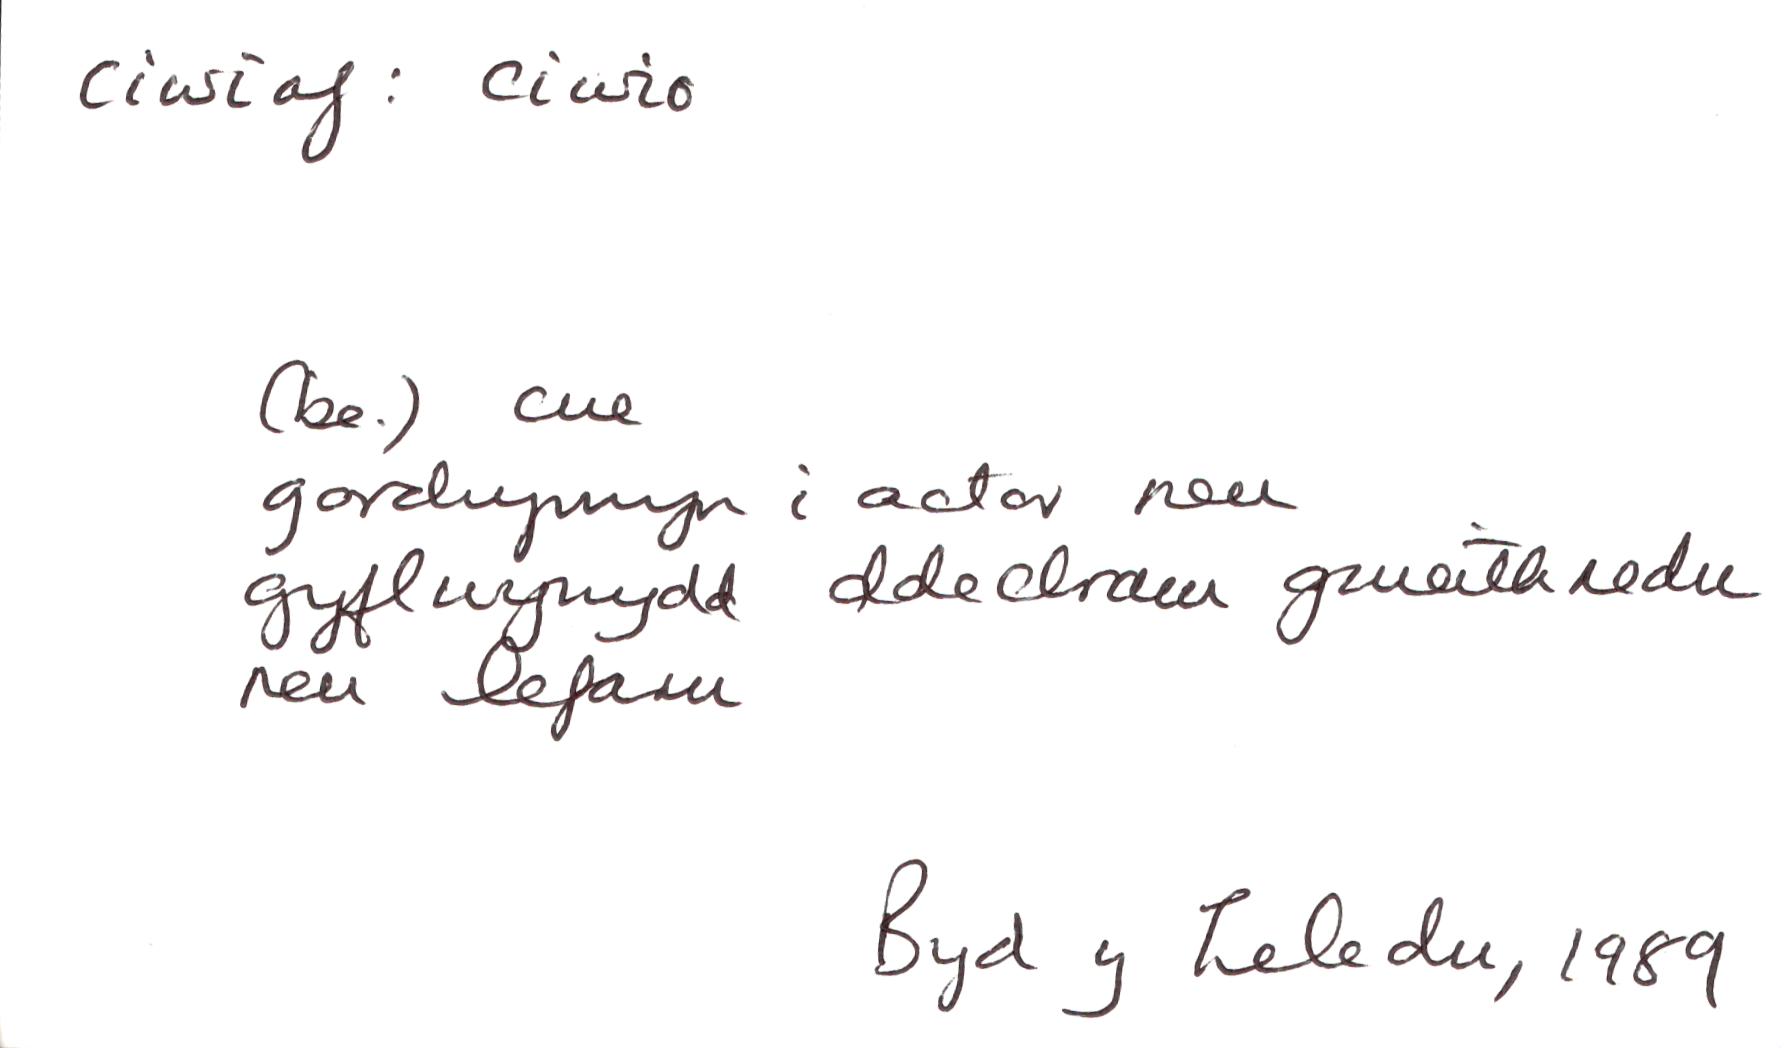 ciwiaf: ciwio
(be.) cue
gorchymyn i actor neu
gyflwynydd ddechrau gweithredu
neu lefaru
Byd y Teledu, 1989